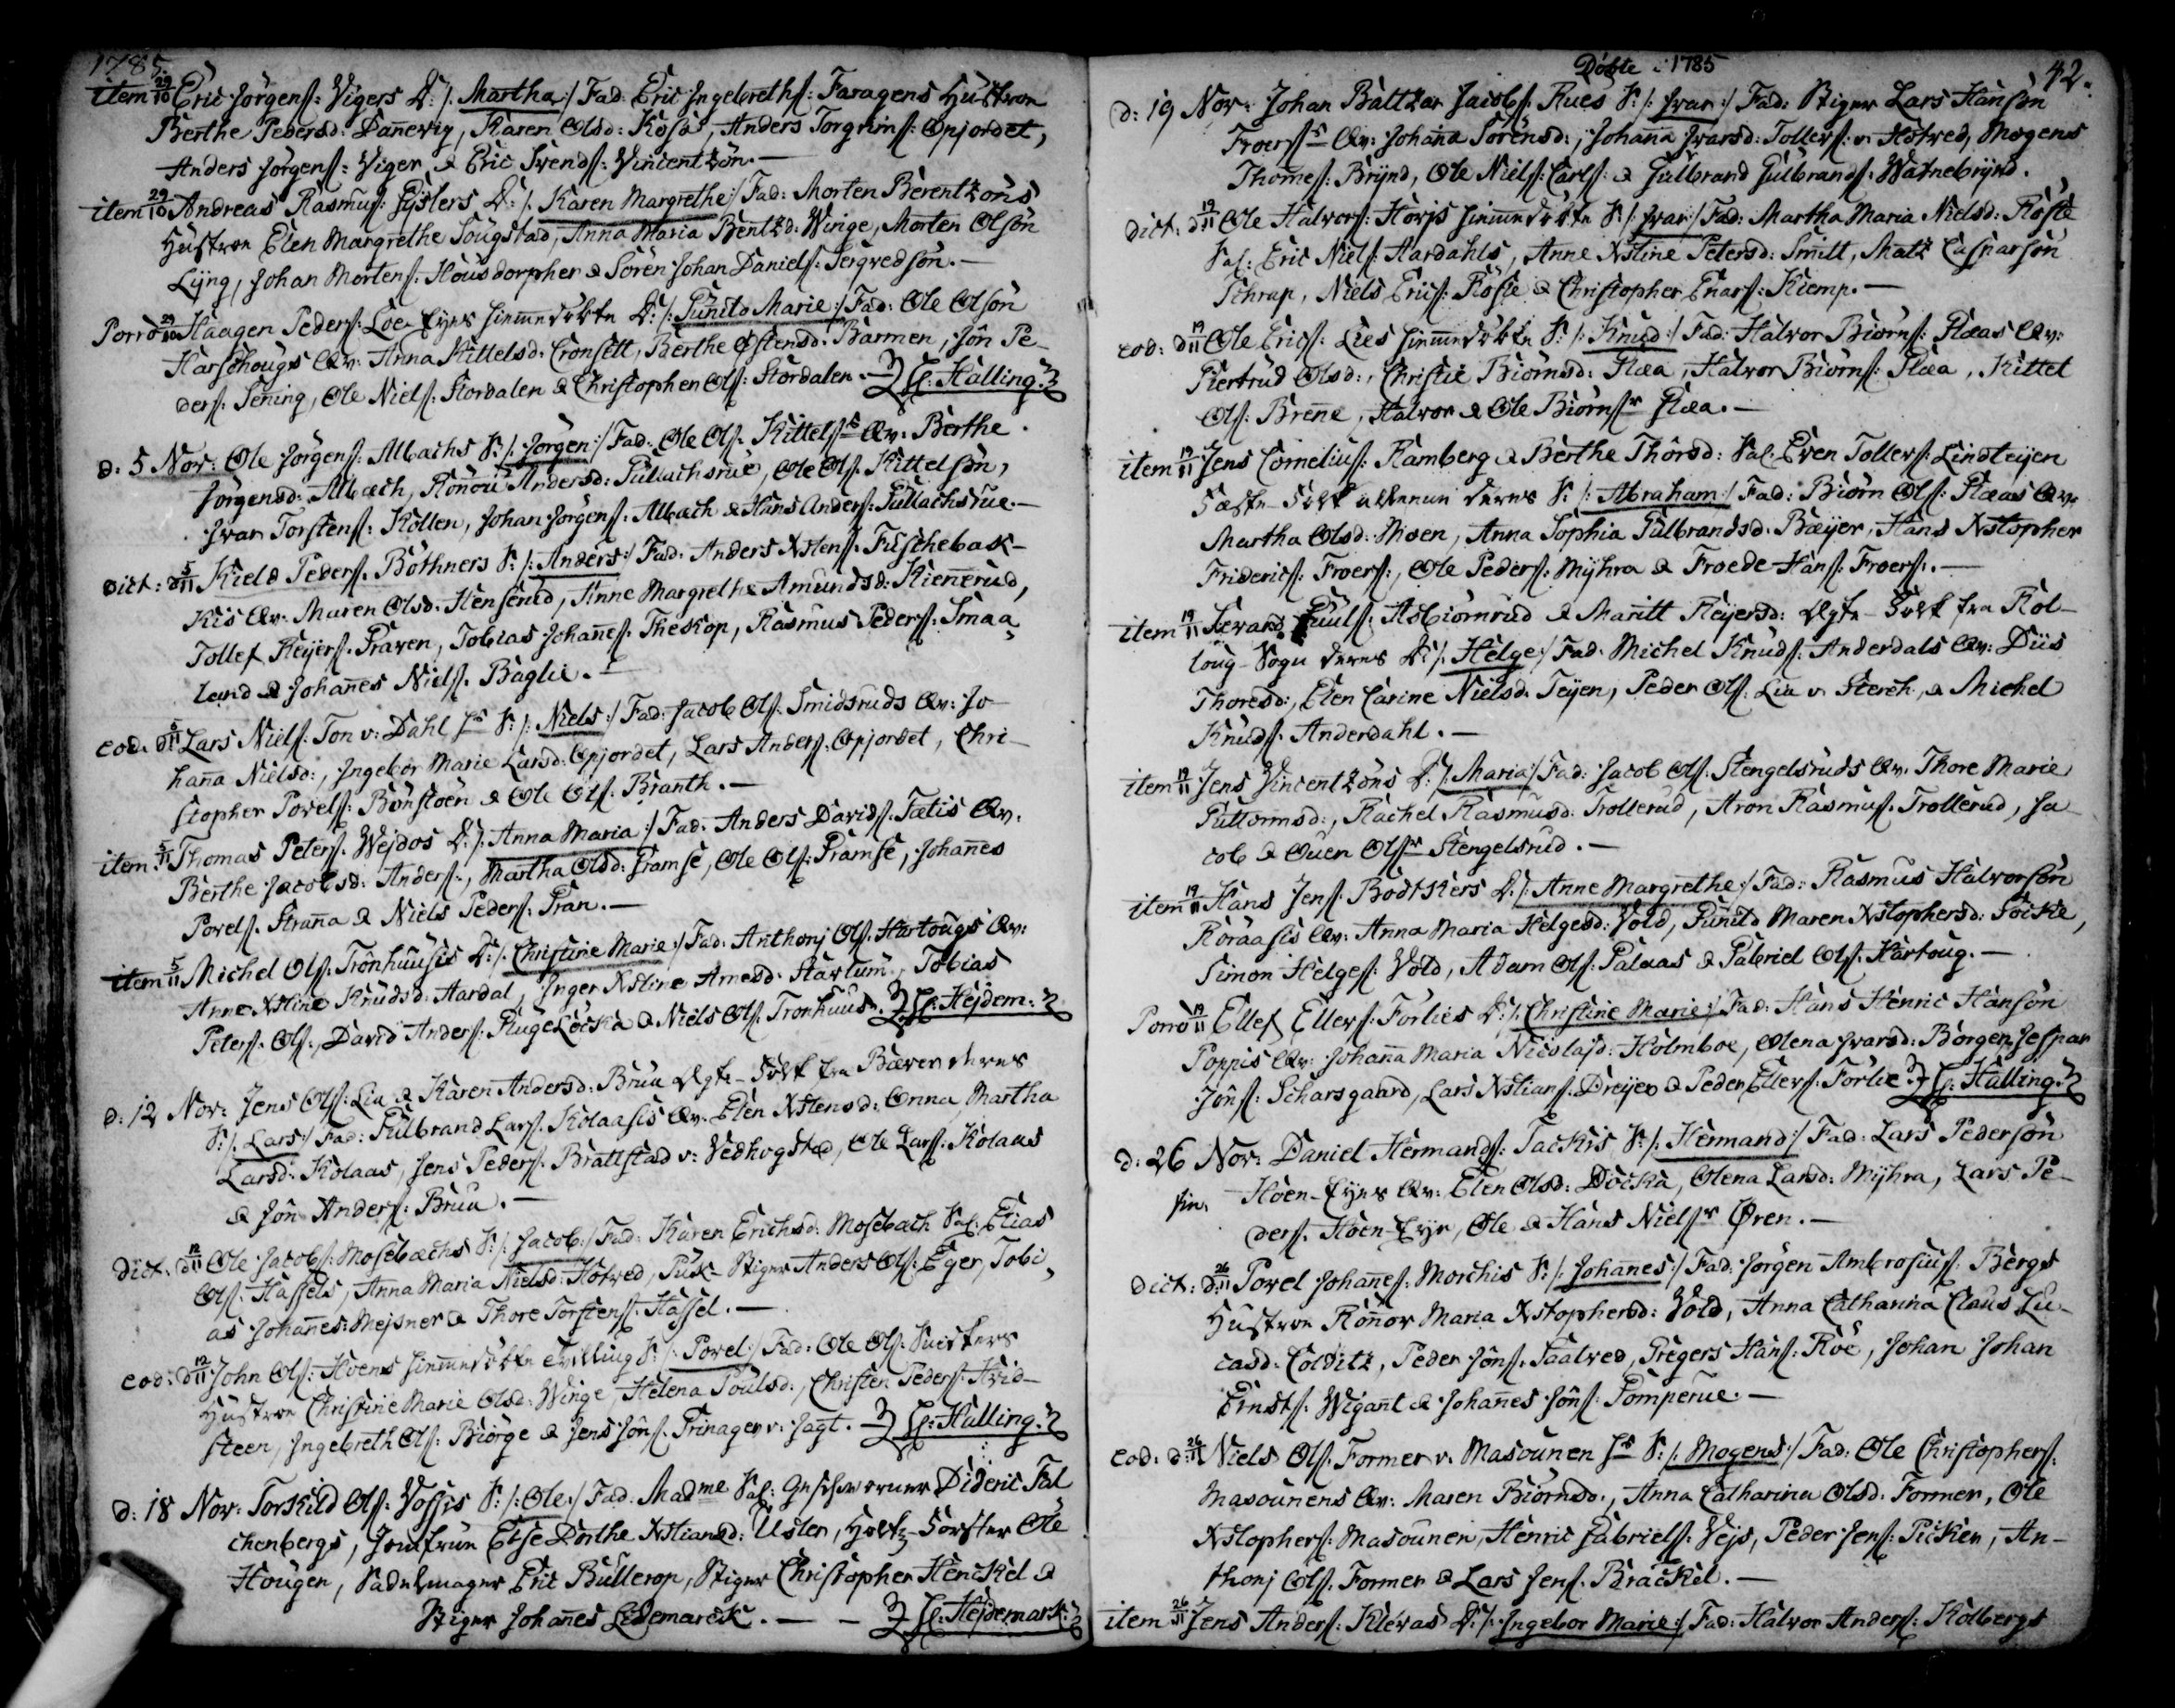 1785.
item 29/10 Eric Jørgens: Vigers D: /: Martha :/ Fad: Eric Ingebreths: Faragens Hustroe
Berthe Pedersd: Dannevig, Karen Olsd: Koss, Anders Torgrims: Opjordet,
Anders Jørgens: Viger & Eric Svends: Vincentzøn. —
item 29/10 Andreas Rasmus: Gyslers D: /: Karen Margrethe :/ Fad: Morten Berentzøns
Hustroe Elen Margrethe Sougstad, Anna Maria Bentzd: Winge, Morten Olsøn
Lyng, Johan Mortens: Housdorpher & Søren Johan Daniels: Sergvedsøn. —
Porro 29/10 Haagen Peders: Loe Eyes hiemmedøbte D: /: Gunild Marie :/ Fad: Ole Olsøn
Harschougs Qv: Anna Kittelsd: Cronsett, Berthe Østensd: Barmen, Jôn Pe-
ders: Sening, Ole Niels: Stordalen & Christopher Ols: Stordalen. — H: Halling.
d: 5 Nov: Ole Jørgens: Albachs S: /: Jørgen :/ Fad: Ole Ols: Kittelss Qv: Berthe
Jørgensd: Albach, Rønnou Andersd: Gullachsrue, Ole Ols: Kittelsøn,
Ivar Torstens: Kollen, Johan Jørgens: Albach & Hans Anders: Gullachsrue. —
Dict: d 5/11 Kield Peders: Bøthners S: /: Anders :/ Fad: Anders Xstens: Fuschebak-
kis Qv: Maren Olsd: Hensrud, Anne Margrethe Amundsd: Kiennerud,
Tollef Reyers: Graven, Tobias Johannes: Theskop, Rasmus Peders: Smaa-
land & Johannes Niels: Baglie. —
eod: d 5/11 Lars Niels: Ton v: Dahl Jr S: /: Niels :/ Fad: Jacob Ols: Smidsruds Qv: Jo-
hanna Nielsd:, Ingebor Marie Larsd: Opjordet, Lars Anders: Opjordet, Chri-
stopher Povels: Bønstoen & Ole Ols: Branth. —
item 5/11 Thomas Peters: Wejdos D: /: Anna Maria :/ Fad: Anders Davids: Fætis Qv:
Berthe Jacobsd: Anders:, Martha Olsd: Gramse, Ole Ols: Gramse, Johannes
Povels: Stranna & Niels Peders: Gran. —
item 5/11 Michel Ols: Tronhuusis D: /: Christine Marie :/ Fad: Anthonj Ols: Hartougs Qv:
Anne Xstine Knudsd: Aardal, Inger Xstine Arnesd: Startum, Tobias
Peters: Ols:, David Anders: Flugeløcka & Niels Ols: Tronhuus. H: Hejdem:
d: 12 Nov: Jens Ols: Lia & Karen Andersd: Bruu Ægte-Folk fra Bæver deres
S: /: Lars :/ Fad: Gulbrand Lars: Kolaasis Qv: Elen Xstensd: Onna, Martha
Larsd: Kolaas, Jens Peders: Brattstad v: Vedhogstad, Ole Lars: Kolaas
& Jôn Anders: Bruu. —
Dict: d 12/11 Ole Jacobs: Mosebachs S: /: Jacob :/ Fad: Karen Erichsd: Mosebach Sal: Elias
Ols: Hassels, Anna Maria Nielsd: Hotved, Puk-Stiger Anders Ols: Eger, Tobi-
as Johannes: Mejsner & Thore Torstens: Hassel. —
eod: d 12/11 John Ols: Hoens hiemmedøbte Tvilling S: /: Povel :/ Fad: Ole Ols: Snikers
Hustroe Christine Marie Olsd: Winge, Helena Poulsd:, Christen Peders: Hvid-
steen, Ingebreth Ols: Biørge & Jens Jôns: Prinager v: Jagt. — H: Halling.
d: 18 Nov: Torkild Ols: Vossis S: /: Ole :/ Fad: Madme Sal: Geschworner Dideric Fal
chenbergs, Jomfrue Else Dorthe Xstiansd: Usler, Holtz-Førster Ole
Hougen, Sadelmager Eric Bullerop, Stiger Christopher Henckel &
Stiger Johannes Ledemarck. — — H: Hejdemark:
Døbte 1785
42.
d: 19 Nov: Johan Baltzar Jacobs: Rues S: /: Ivar :/ Fad: Stiger Lars Hansøn
Froerss Qv: Johanna Sørensd:, Johanna Ivarsd: Tollers: v: Hotved, Mogens
Thomes: Brynd, Ole Niels: Carls: & Gulbrand Gulbrands: Watnebrynd.
Dict: d 19/11 Ole Halvors: Korjs hiemmedøbte S: /: Ivar :/ Fad: Martha Maria Nielsd: Foste
Sal: Eric Niels: Aardahls, Anne Xstine Petersd: Smitt, Matz Casparsøn
Schrap, Niels Erics: Foste & Christopher Enars: Kiemp. —
eod: d 19/11 Ole Erics: Lies hiemmedøbte S: /: Knud :/ Fad: Halvor Biørns: Flaas Qv:
Giertrud Olsd:, Christie Biørnsd: Flaa, Halvor Biørns: Flaa, Kittel
Ols: Brenne, Halvor & Ole Biørnsr Flaa. —
item 19/11 Jens Cornelius: Ramberg & Berthe Thorsd: Sal: Even Tollers: Lindteyen
Fæste-Folk allene deres S: /: Abraham :/ Fad: Biørn Ols: Flaas Qv:
Martha Olsd: Moen, Anna Sophia Gulbrandsd: Bæyer, Hans Xstopher
Friderics: Froers:, Ole Peders: Myhra & Froede Hans: Froers:. —
item 19/11 Sevard Juuls: Asbiørnrud & Maritt Reyersd: Ægte-Folk fra Rol-
loug-Sogn deres D: /: Helge :/ Fad: Michel Knuds: Anderdals Qv: Diis
Thoresd:, Elen Carine Nielsd: Teyen, Peder Ols: Lia v: Sterch, & Michel
Knuds: Anderdahl. —
item 19/11 Jens Vincentzøns D: /: Maria :/ Fad: Jacob Ols: Stengelsruds Qv: Thore Marie
Guttormsd:, Rachel Rasmusd: Trollerud, Aron Rasmus: Trollerud, Ja-
cob & Ouen Olsr Stengelsrud. —
item 19/11 Hans Jens: Bødtkers D: /: Anne Margrethe :/ Fad: Rasmus Halvorsøn
Roraasis Qv: Anna Maria Helgesd: Vold, Gunild Maren Xstophersd: Focke,
Simon Helges: Vold, Adam Ols: Palaas & Gabriel Ols: Hartoug. —
Porro 19/11 Ellef Ellefs: Forlies D: /: Christine Marie :/ Fad: Hans Henric Hansøn
Poppis Qv: Johanna Maria Nicolajd: Holmboe, Olena Ivarsd: Borgen, Jespar
Jôns: Scharsgaard, Lars Xstians: Dreyer & Peder Ellefs: Forlie. H: Halling.
d: 26 Nov: Daniel Hermands: Tackis S: /: Hermand :/ Fad: Lars Pedersøn
Hoen-Eyes Qv: Elen Olsd: Docka, Olena Larsd: Myhra, Lars Pe-
ders: Hoen-Eye, Ole & Hans Nielsr Øren. —
Dict: d 26/11 Povel Johannes: Morchis S: /: Johannes :/ Fad: Jørgen Ambrosius: Bergs
Hustroe Rønnov Maria Xstophersd: Vold, Anna Catharina Claus Lu-
casd: Colditz, Peder Jôns: Saalved, Gregers Hans: Roe, Johan Johan
Ernsts: Wigant & Johannes Jôns: Pomperue. —
eod: d 26/11 Niels Ols: Former v: Masounen Jr S: /: Mogens :/ Fad: Ole Christophers:
Masounens Qv: Maren Biørnsd:, Anna Catharina Olsd: Former, Ole
Xstophers: Masounen, Henric Gabriels: Vejs, Peder Jens: Picker, An-
thonj Ols: Former & Lars Jens: Brackel. —
item 26/11 Jens Anders: Klevas D: /: Ingebor Marie :/ Fad: Halvor Anders: Kolbergs